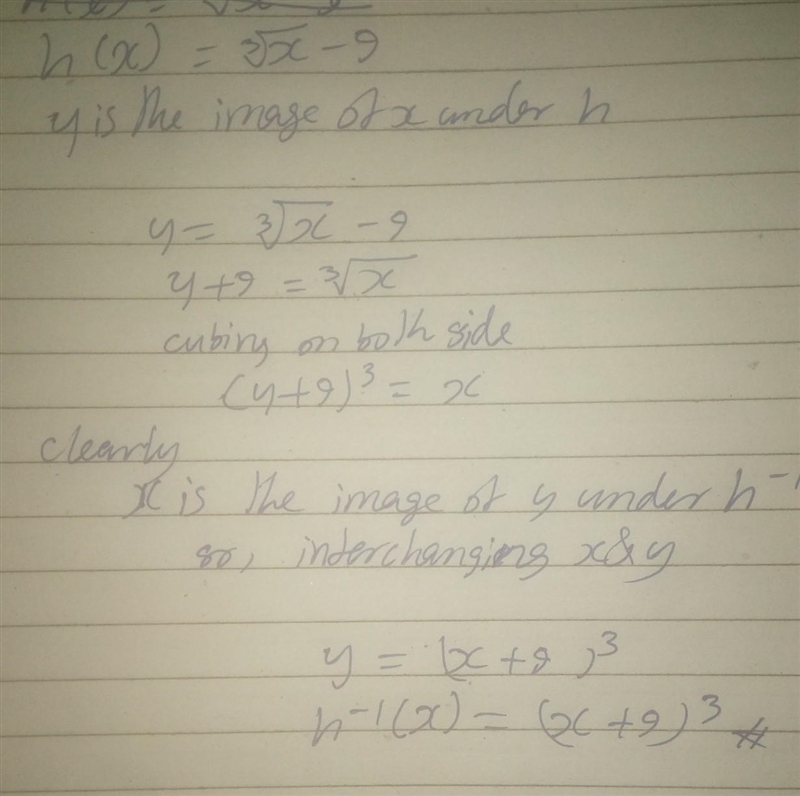 h(x) = ∛x - 9
y is the image of x under h
y = ∛x - 9
y+9 = ∛x
cubing on both side
(y+9)³ = x
clearly
x is the image of y under h⁻¹
so, interchanging x&y
y = (x+9)³
h⁻¹(x) = (x+9)³ #